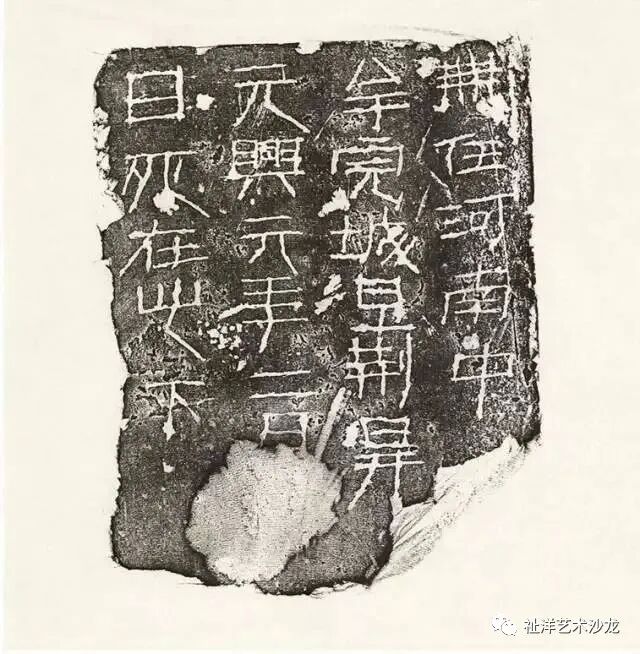 無任河南中
牟完城旦荊
元興元年
日死在此下
祉洋艺术沙龙